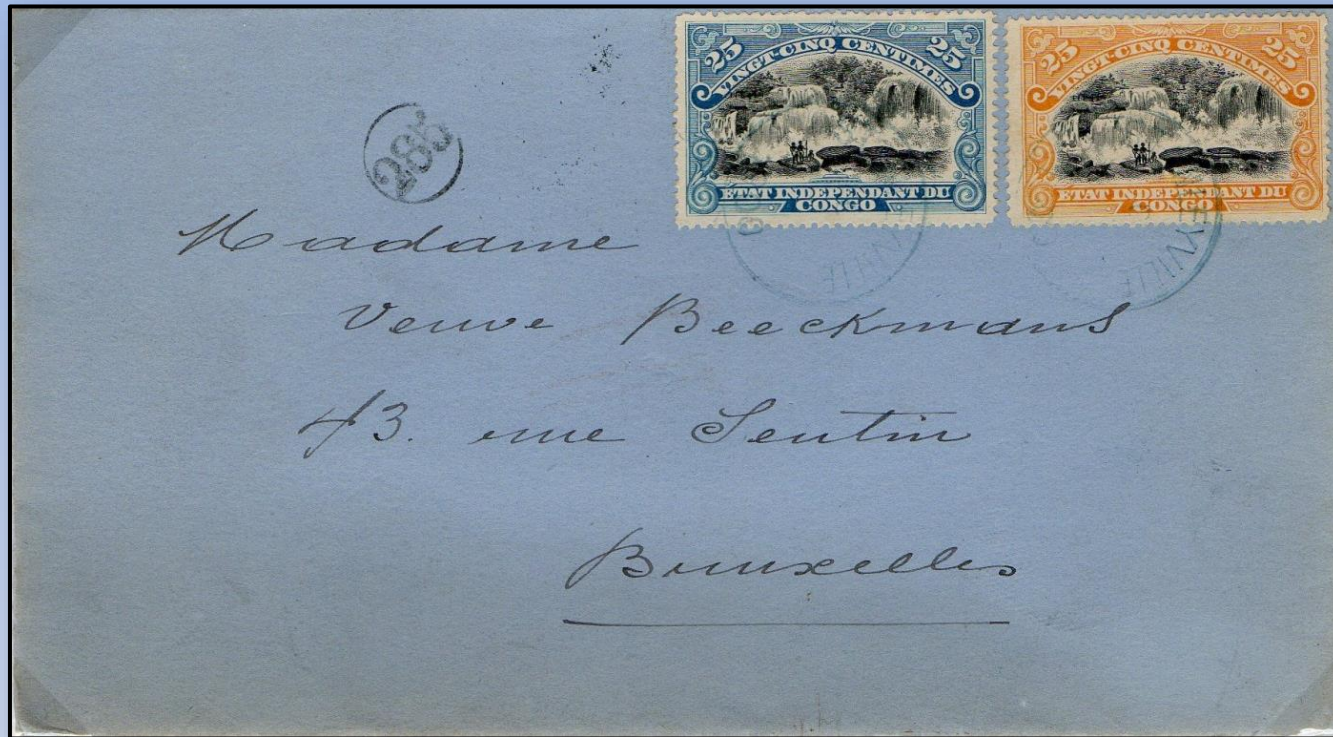 25 VINGT-CINQ CENTIMES 25
ETAT INDEPENDANT DU
CONGO
25 VINGT-CINQ CENTIMES 25
ETAT INDEPENDANT DU
CONGO
285
Madame
Veuve Beeckmans
43. rue Seutin
Bruxelles